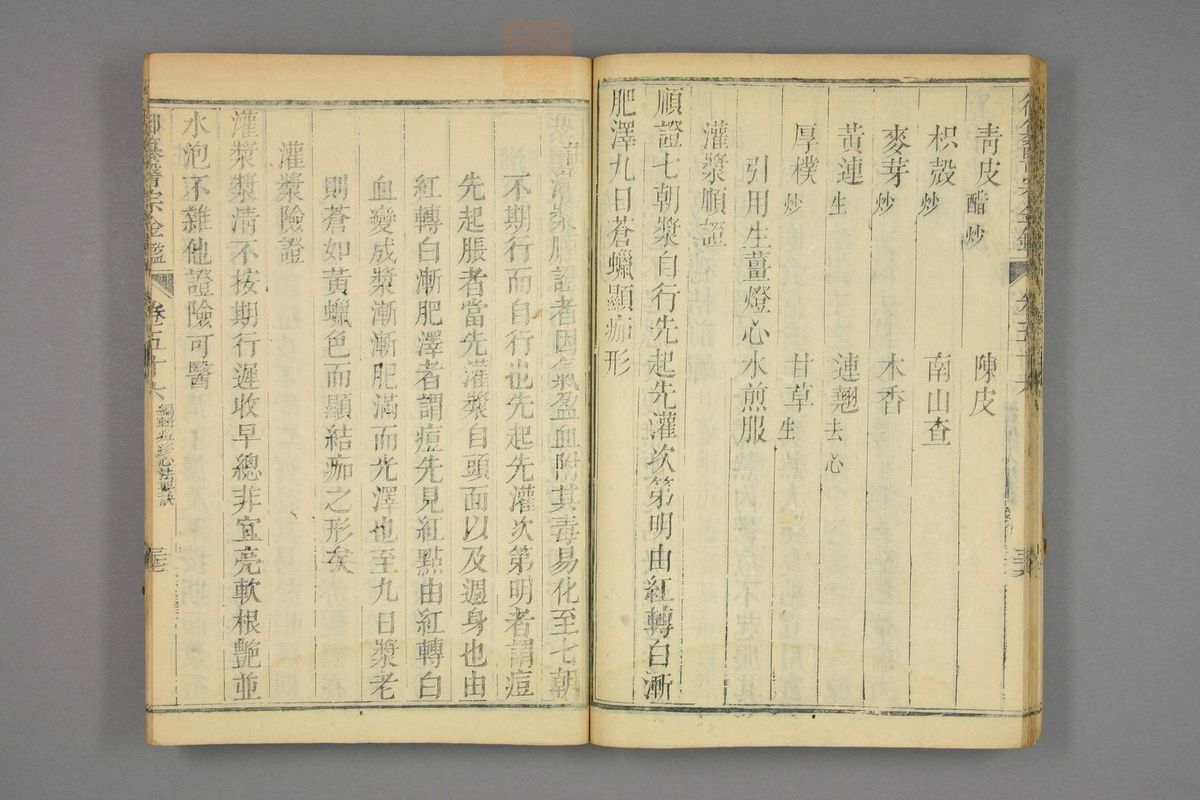 青皮醋炒 陳皮
枳殼炒 南山查
麥芽炒 木香
黃連生 連翹去心
厚樸炒 甘草生
引用生薑燈心水煎服
灌漿順證
順證七朝漿自行先起先灌次第明由紅轉白漸
肥澤九日蒼蠟顯痂形
漿順證者因氣盈血附其毒易化至七朝
不期行而自行也先起先灌次第明者謂痘
先起脹者當先灌漿自頭面以及週身也由
紅轉白漸肥澤者謂痘先見紅點由紅轉白
血變成漿漸漸肥滿而光澤也至九日漿老
則蒼如黃蠟色而顯結痂之形矣
灌漿險證
灌漿漿清不按期行遲收早總非宜亮軟根艷並
水泡不雜他證險可醫
御纂醫宗金鑑 卷五十六 編輯痘疹心法要訣